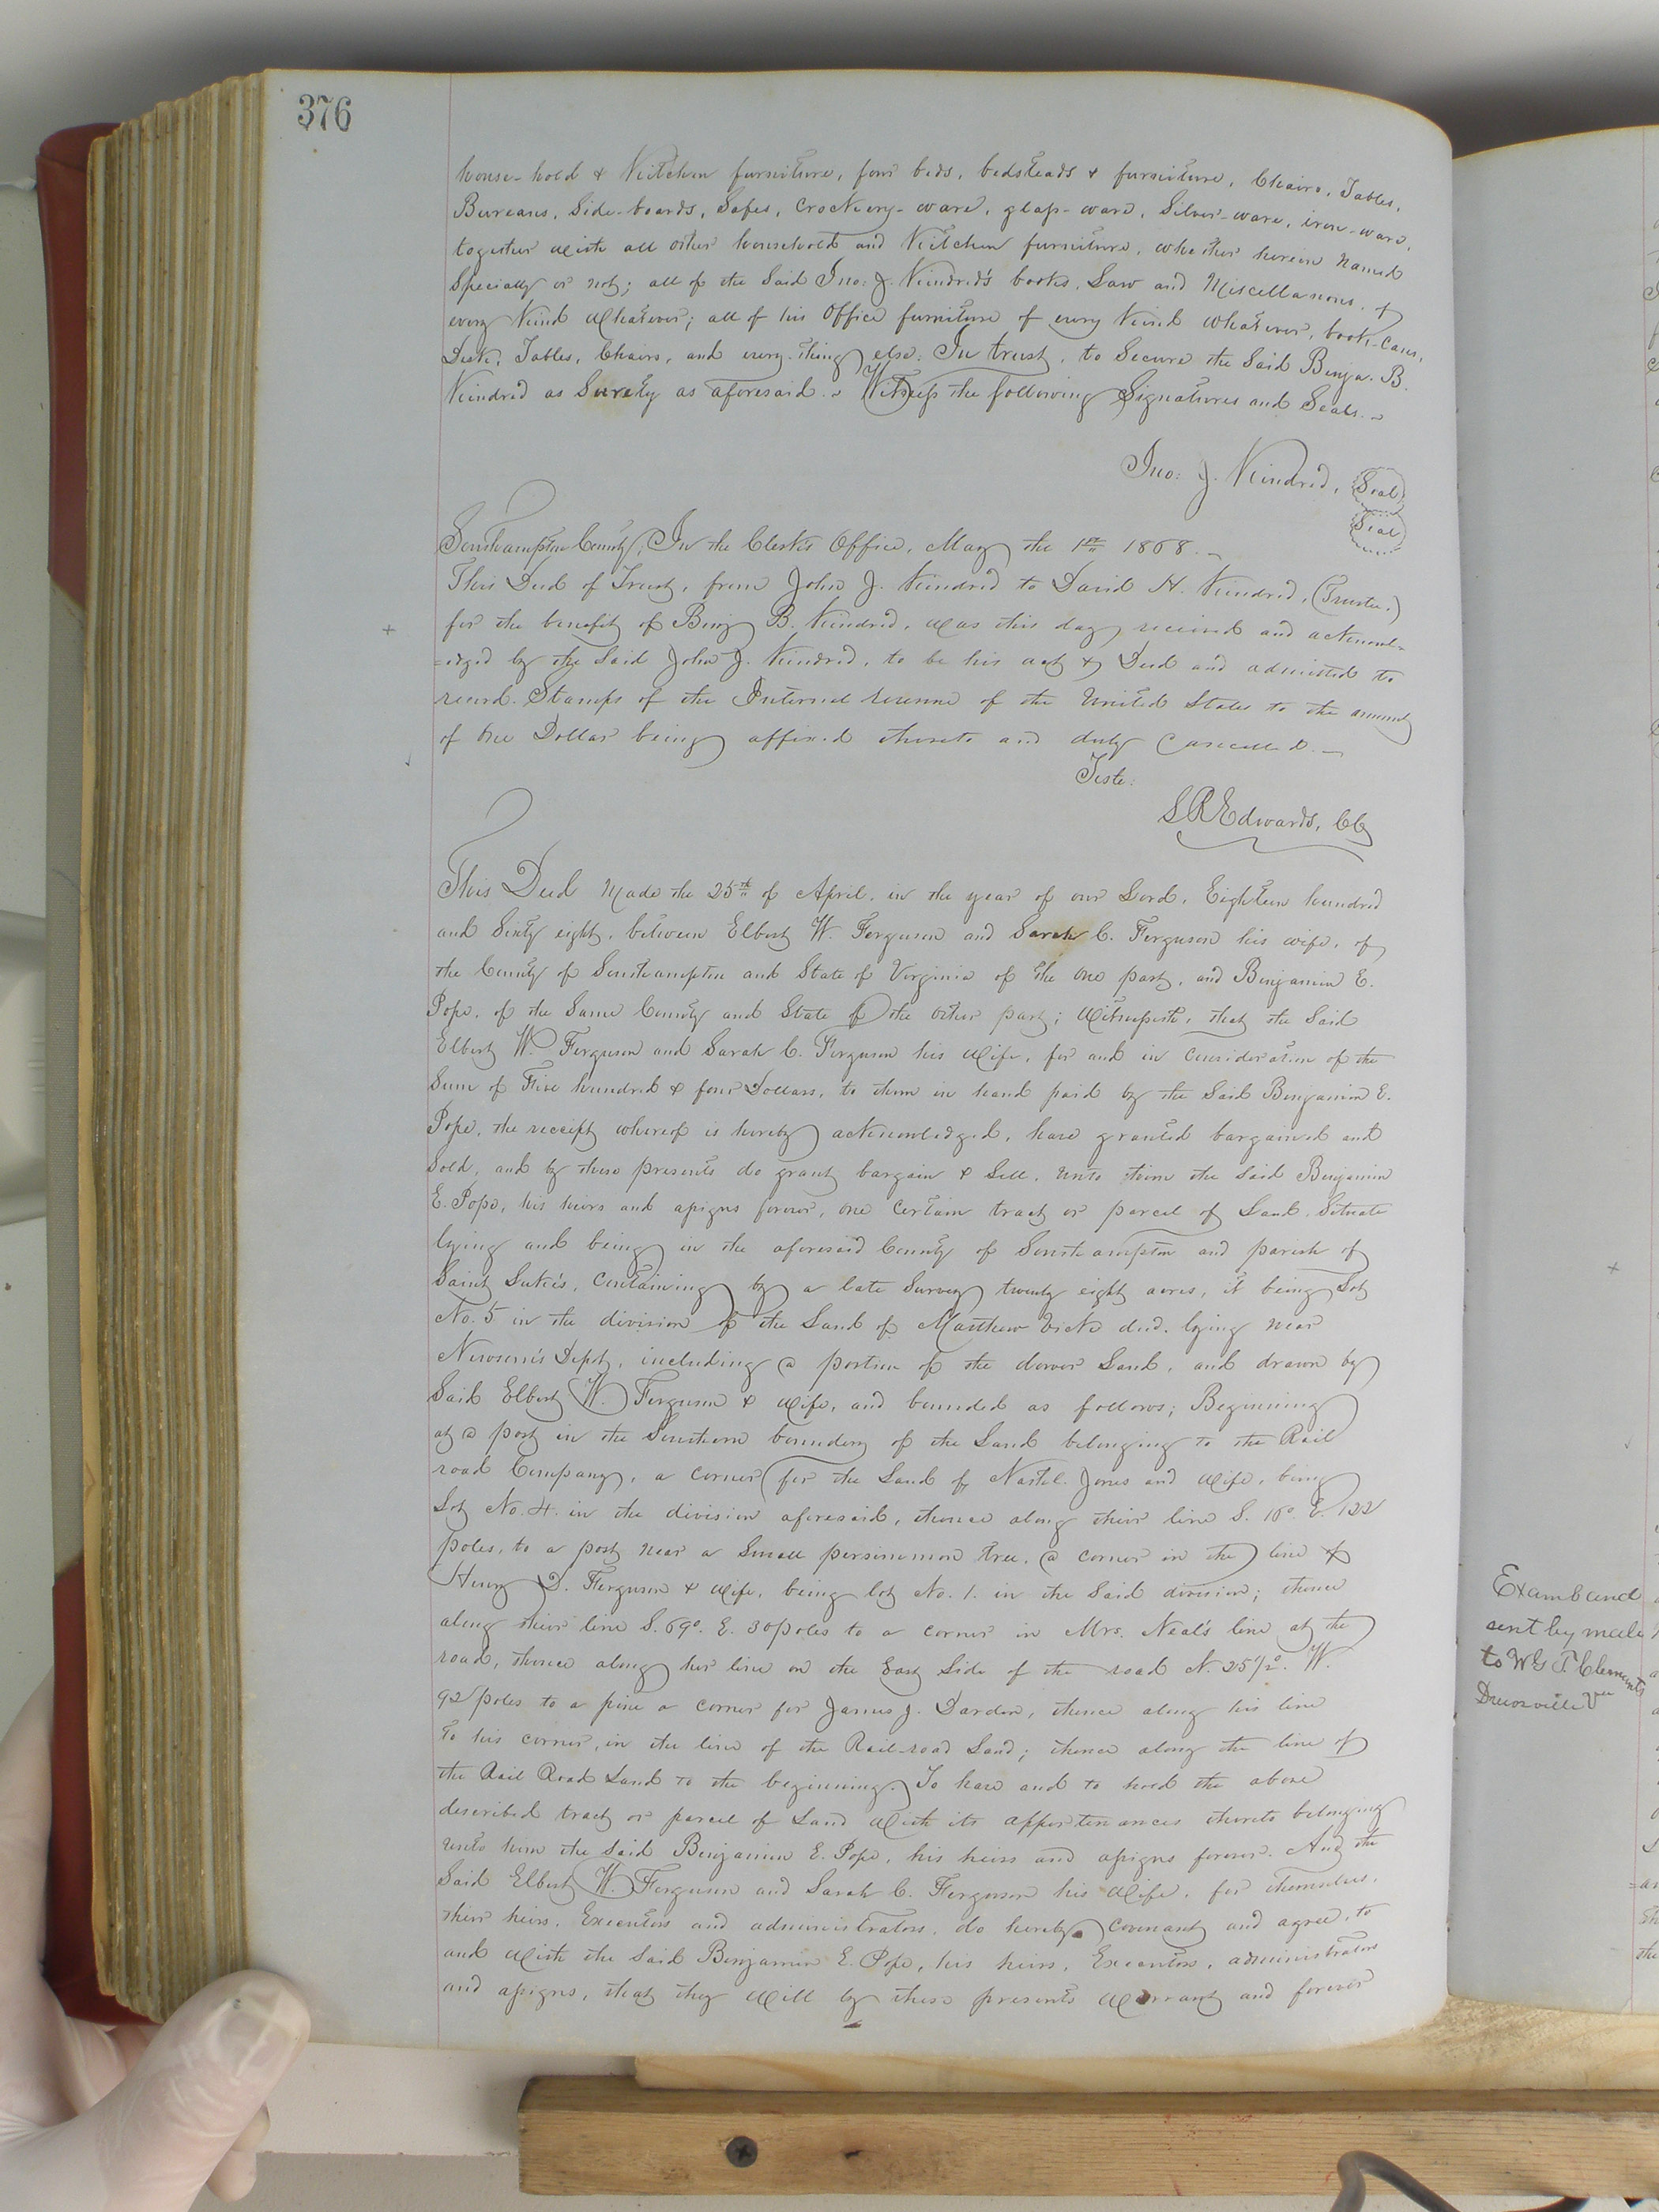 376
house-hold & Kitchen furniture, four beds, bedsteads & furniture, Chairs, Tables,
Bureaus, Side-boards, Safes, Crockery-ware, glass-ware, Silver-ware, iron-ware,
together with all other household and Kitchen furniture, whether herein named
Specially or not; all of the Said Jno: J. Kindred's books, Law and Miscellaneous, of
every Kind Whatever; all of his Office furniture of every Kind whatever, book-Cases,
Desk, Tables, Chairs, and every-thing else: In trust, to Secure the Said Benja. B.
Kindred as Surety as aforesaid. Witness the following Signatures and Seals.
Jno: J. Kindred, Seal
Seal
Southampton County; In the Clerk's Office, May the 1st 1868.
This Deed of Trust, from John J. Kindred to David H. Kindred, (Trustee,)
for the benefit of Benj B. Kindred, Was this day received and acknowl-
=edged by the Said John J. Kindred, to be his act & Deed and admitted to
record. Stamps of the Internal revenue of the United States to the amount
of One Dollar being affixed thereto and duly Cancelled.
Teste:
L R Edwards, CC
This Deed Made the 25th of April, in the year of our Lord, Eighteen hundred
and Sixty eight, between Elbert W. Ferguson and Sarah C. Ferguson his wife, of
the County of Southampton and State of Virginia of the One part, and Benjamin E.
Pope, of the Same County and State of the other part; Witnesseth, that the Said
Elbert W. Ferguson and Sarah C. Ferguson his Wife, for and in Consideration of the
Sum of Five hundred & four Dollars, to them in hand paid by the Said Benjamin E.
Pope, the receipt whereof is hereby acknowledged, have granted bargained and
Sold, and by these presents do grant bargain & Sell, unto him the Said Benjamin
E. Pope, his heirs and assigns forever, one Certain tract or parcel of Land, Situate
lying and being in the aforesaid County of Southampton and parish of
Saint Luke's, Containing by a late Survey twenty eight acres, it being Lot
No. 5 in the division of the Land of Matthew Vick decd. lying near
Newsom's Depot, including a portion of the dower Land, and drawn by
Said Elbert W. Ferguson & Wife, and bounded as follows; Beginning
at a post in the Southern boundary of the Land belonging to the Rail
road Company, a corner for the Land of Nathl. Jones and Wife, being
Lot No. 4. in the division aforesaid, thence along their line S. 18°. E. 122
poles, to a post near a Small persimmon tree, a corner in the line of
Henry D. Ferguson & Wife, being lot No. 1. in the Said division; thence
along their line S. 69°. E. 30 poles to a corner in Mrs. Neal's line at the
road, thence along her line on the East Side of the road N. 25 1/2°. W.
92 poles to a pine a corner for James J. Darden, thence along his line
to his corner, in the line of the Rail-road Land; thence along the line of
the Rail Road Land to the beginning. To have and to hold the above
described tract or parcel of Land With its appurtenances thereto belonging
unto him the Said Benjamin E. Pope, his heirs and assigns forever. And the
Said Elbert W. Ferguson and Sarah C. Ferguson his Wife, for themselves,
their heirs, Executors and administrators, do hereby Covenant and agree, to
and With the Said Benjamin E. Pope, his heirs, Executors, administrators
and assigns, that they Will by these presents Warrant and forever
Examd and
sent by mail
to W G T Clements
Drewsville Va